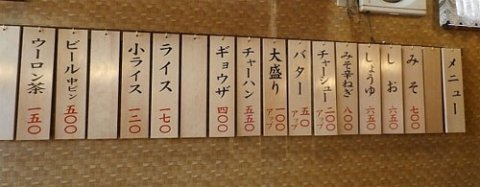 メニュー
みそ 七〇〇
しお 六五〇
しょうゆ 六五〇
みそ辛ねぎ 八〇〇
チャーシュー 二〇〇アップ
バター 五〇アップ
大盛り 一〇〇アップ
チャーハン 五五〇
ギョウザ 四〇〇
ライス 一七〇
小ライス 一二〇
ビール中ビン 五〇〇
ウーロン茶 一五〇